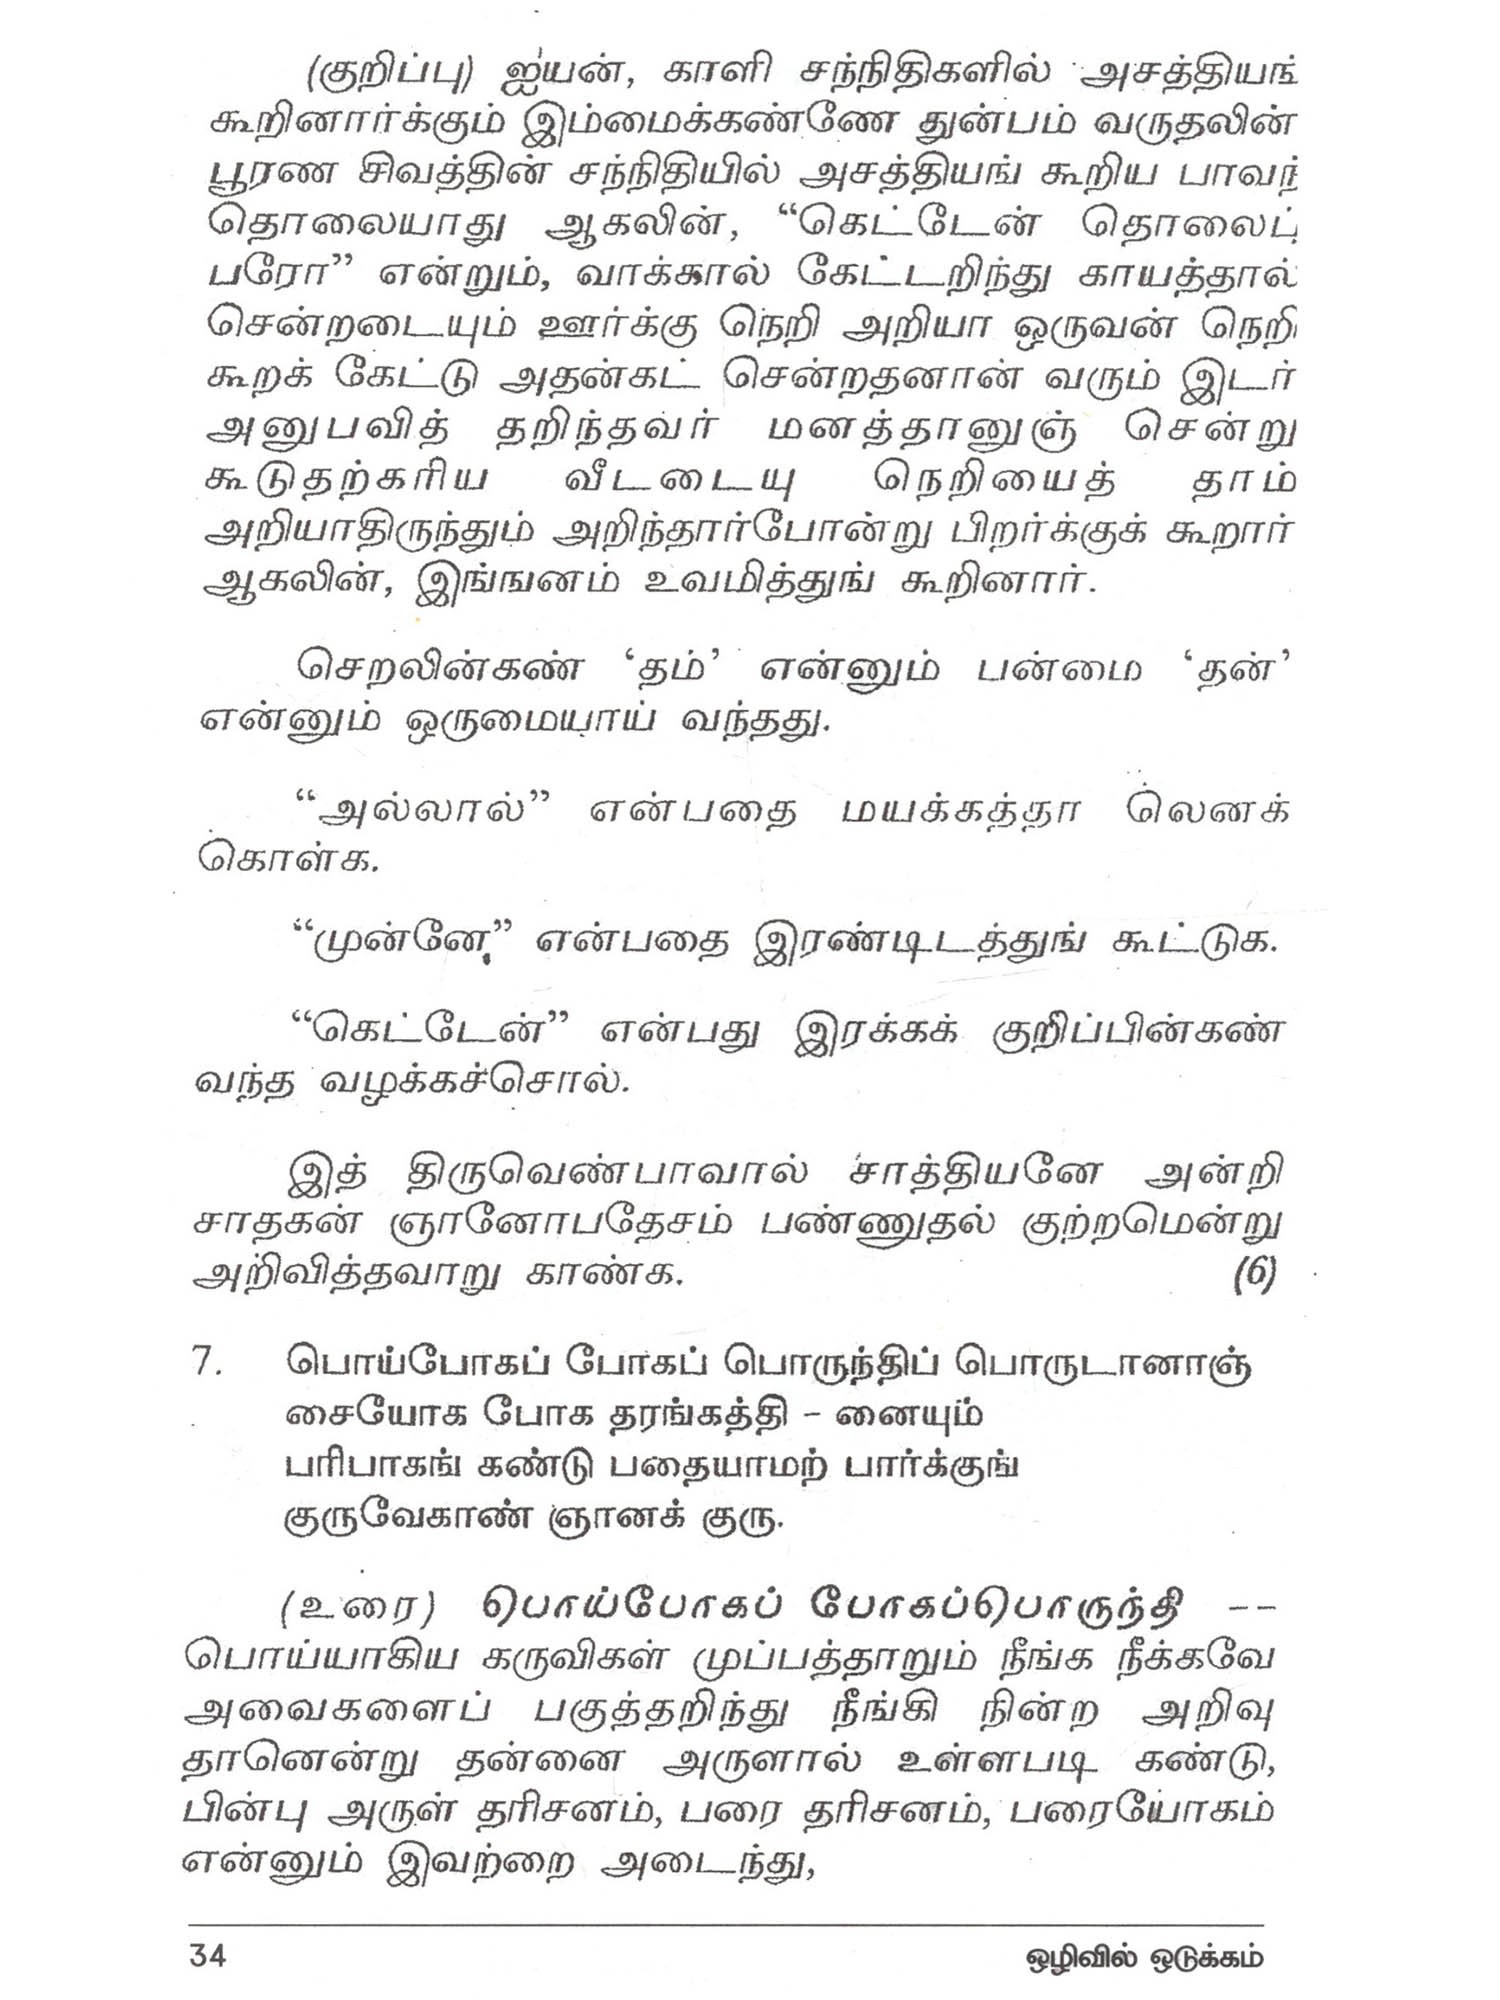 (குறிப்பு) ஐயன், காளி சந்நிதிகளில் அசத்தியங்
கூறினார்க்கும் இம்மைக்கண்ணே துன்பம் வருதலின்
பூரண சிவத்தின் சந்நிதியில் அசத்தியங் கூறிய பாவந்
தொலையாது ஆகலின், “கெட்டேன் தொலைப்
பரோ” என்றும், வாக்கால் கேட்டறிந்து காயத்தால்
சென்றடையும் ஊர்க்கு நெறி அறியா ஒருவன் நெறி
கூறக் கேட்டு அதன்கட் சென்றதனான் வரும் இடர்
அனுபவித் தறிந்தவர் மனத்தானுஞ் சென்று
கூடுதற்கரிய வீடடையு நெறியைத் தாம்
அறியாதிருந்தும் அறிந்தார்போன்று பிறர்க்குக் கூறார்
ஆகலின், இங்ஙனம் உவமித்துங் கூறினார்.
செறலின்கண் ‘தம்’ என்னும் பன்மை ‘தன்’
என்னும் ஒருமையாய் வந்தது.
“அல்லால்” என்பதை மயக்கத்தா லெனக்
கொள்க.
“முன்னே” என்பதை இரண்டிடத்துங் கூட்டுக.
“கெட்டேன்” என்பது இரக்கக் குறிப்பின்கண்
வந்த வழக்கச்சொல்.
இத் திருவெண்பாவால் சாத்தியனே அன்றி
சாதகன் ஞானோபதேசம் பண்ணுதல் குற்றமென்று
அறிவித்தவாறு காண்க. (6)
7. பொய்போகப் போகப் பொருந்திப் பொருடானாஞ்
சையோக போக தரங்கத்தி – னையும்
பரிபாகங் கண்டு பதையாமற் பார்க்குங்
குருவேகாண் ஞானக் குரு.
(உரை) பொய்போகப் போகப்பொருந்தி --
பொய்யாகிய கருவிகள் முப்பத்தாறும் நீங்க நீக்கவே
அவைகளைப் பகுத்தறிந்து நீங்கி நின்ற அறிவு
தானென்று தன்னை அருளால் உள்ளபடி கண்டு,
பின்பு அருள் தரிசனம், பரை தரிசனம், பரையோகம்
என்னும் இவற்றை அடைந்து,
34 ஒழிவில் ஒடுக்கம்